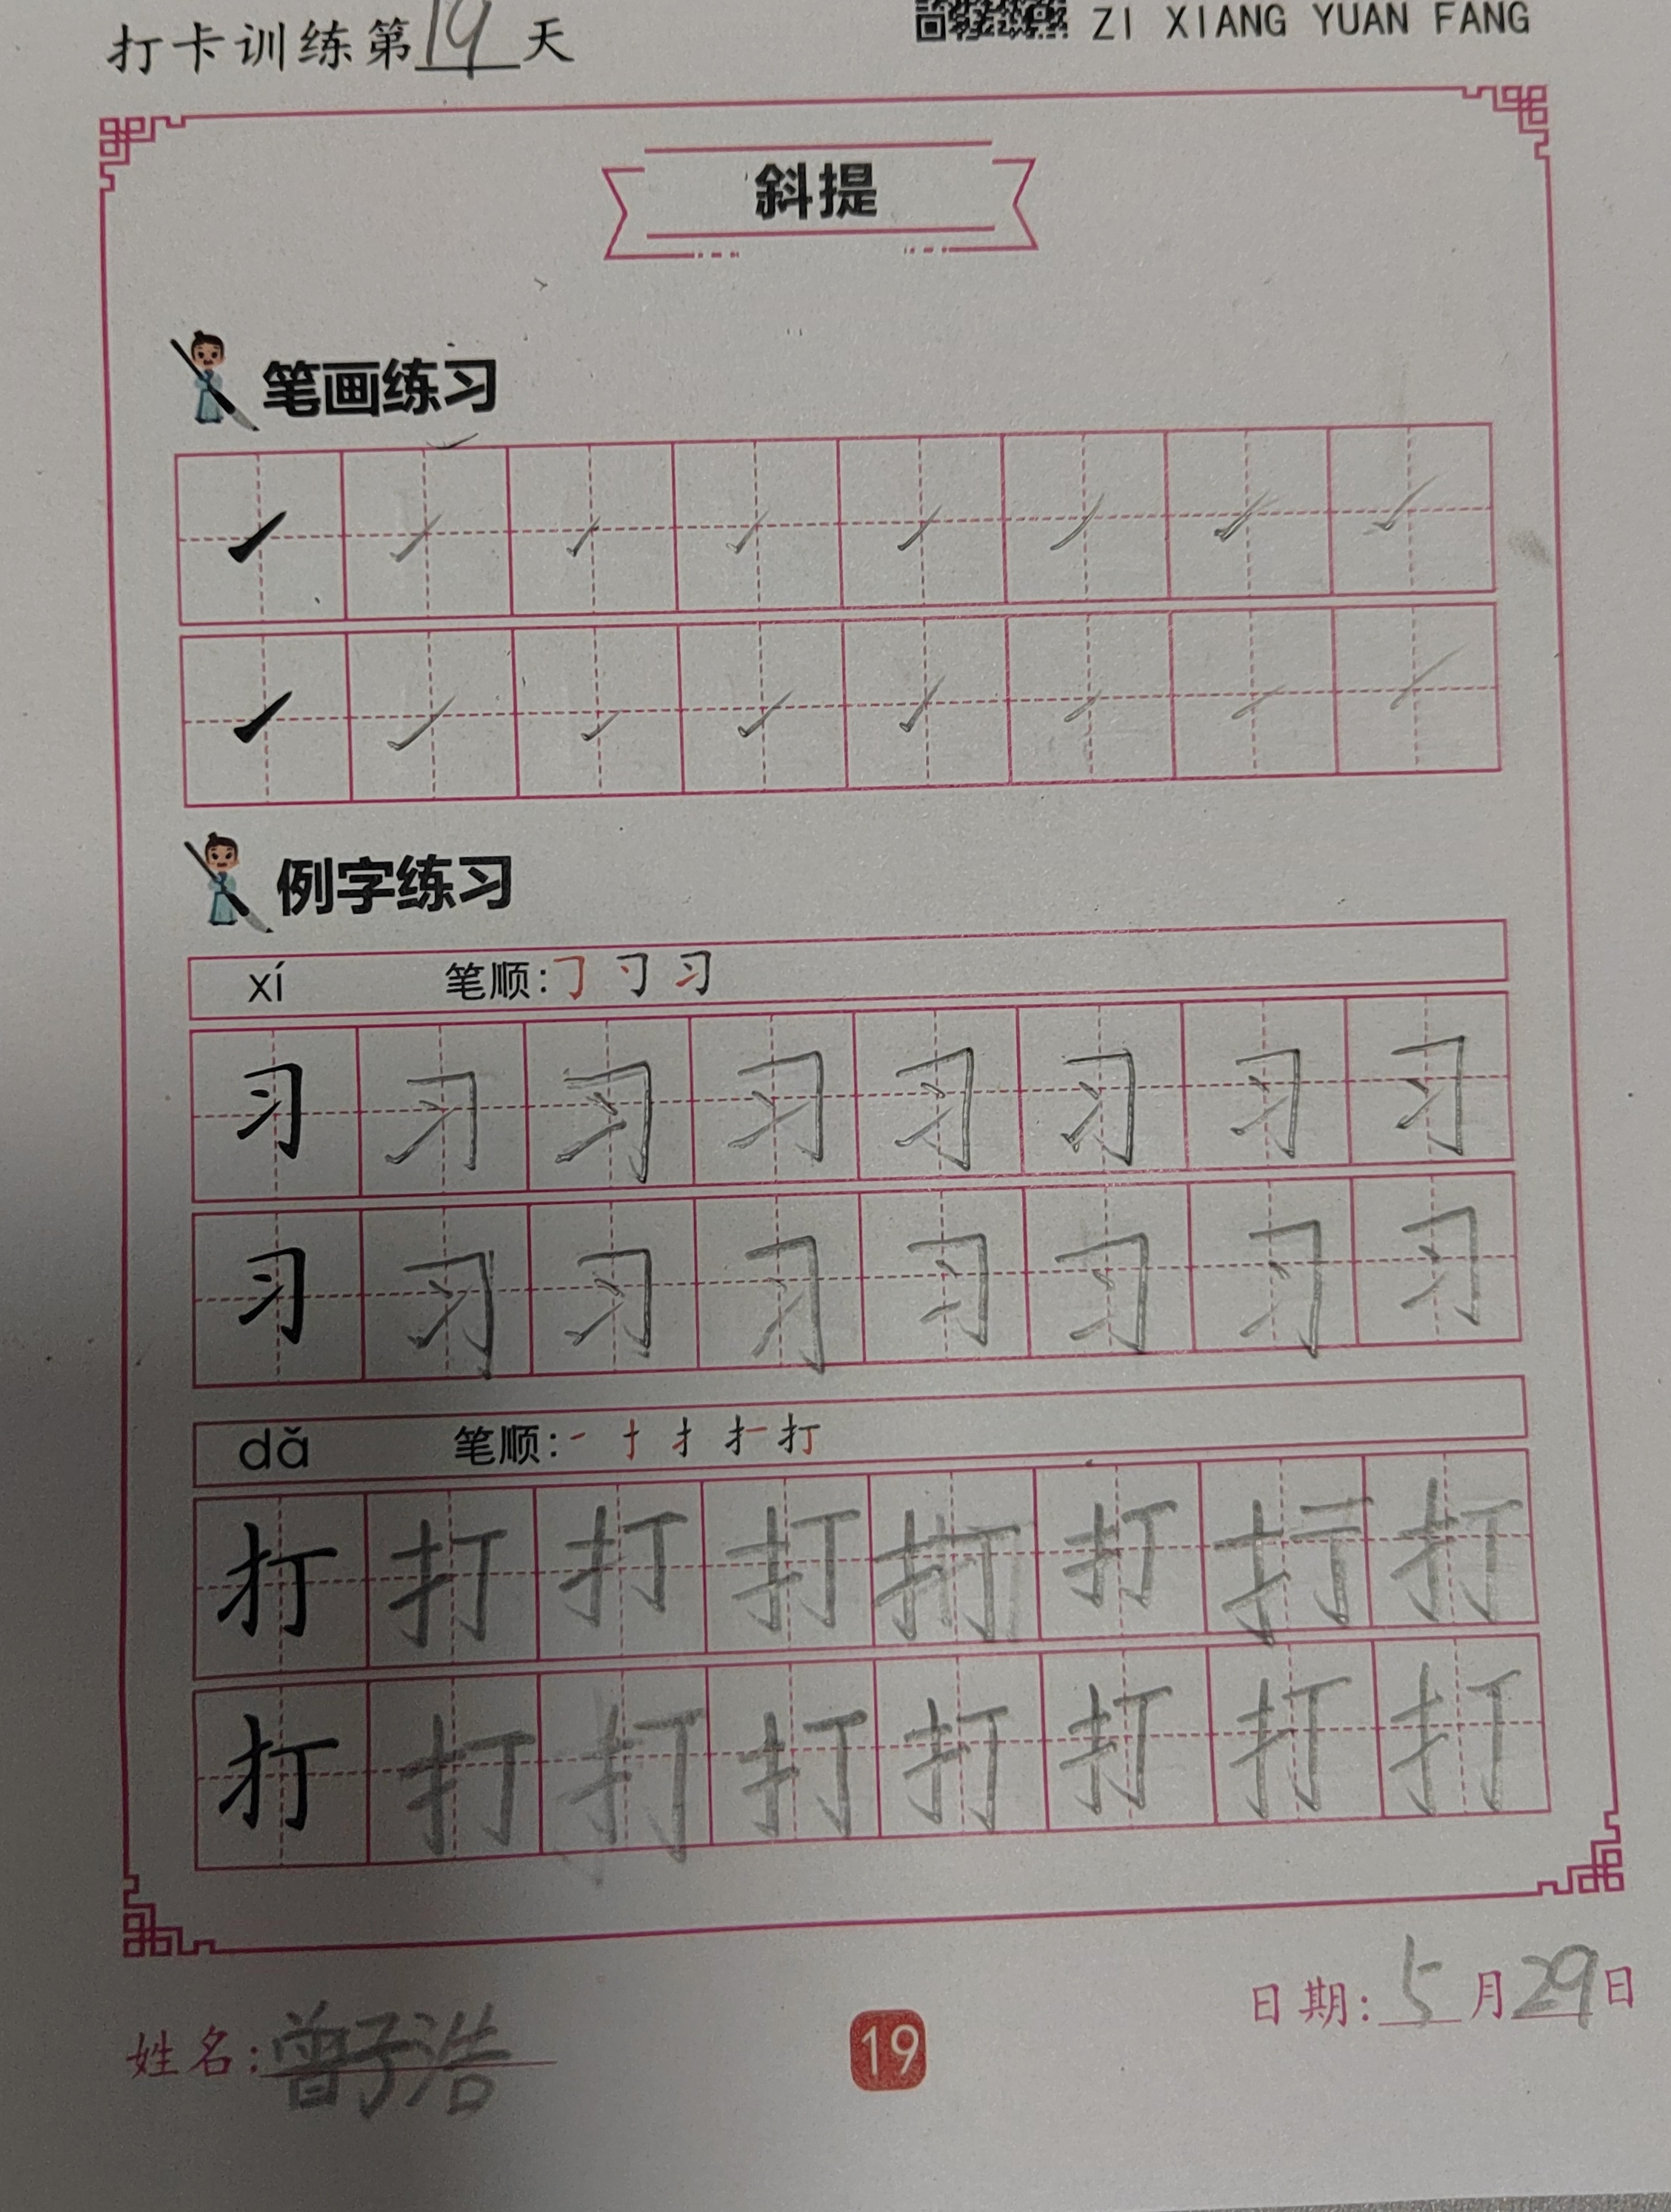 打卡训练第19天
ZI XIANG YUAN FANG
斜提
笔画练习
例字练习
xí 笔顺:㇆ 习
习 习 习 习 习 习 习 习
习 习 习 习 习 习 习 习
dǎ 笔顺:一 扌 打
打 打 打 打 打 打 打 打
打 打 打 打 打 打 打 打
姓名:曾子浩
19
日期:5月29日